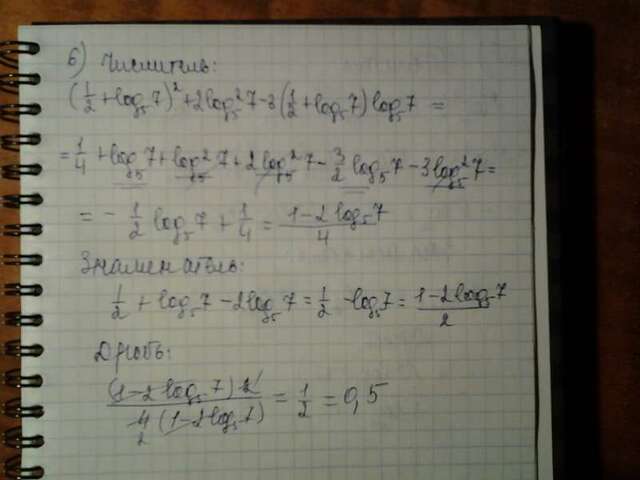 6) Числитель:
(1/2 + log₅7)² + 2log₅²7 - 3(1/2 + log₅7)log₅7 =
= 1/4 + log₅7 + log₅²7 + 2log₅²7 - 3/2 log₅7 - 3log₅²7 =
= - 1/2 log₅7 + 1/4 = (1 - 2log₅7)/4
Знаменатель:
1/2 + log₅7 - 2log₅7 = 1/2 - log₅7 = (1 - 2log₅7)/2
Дробь:
(1 - 2log₅7)2 / 4(1 - 2log₅7) = 1/2 = 0,5
2